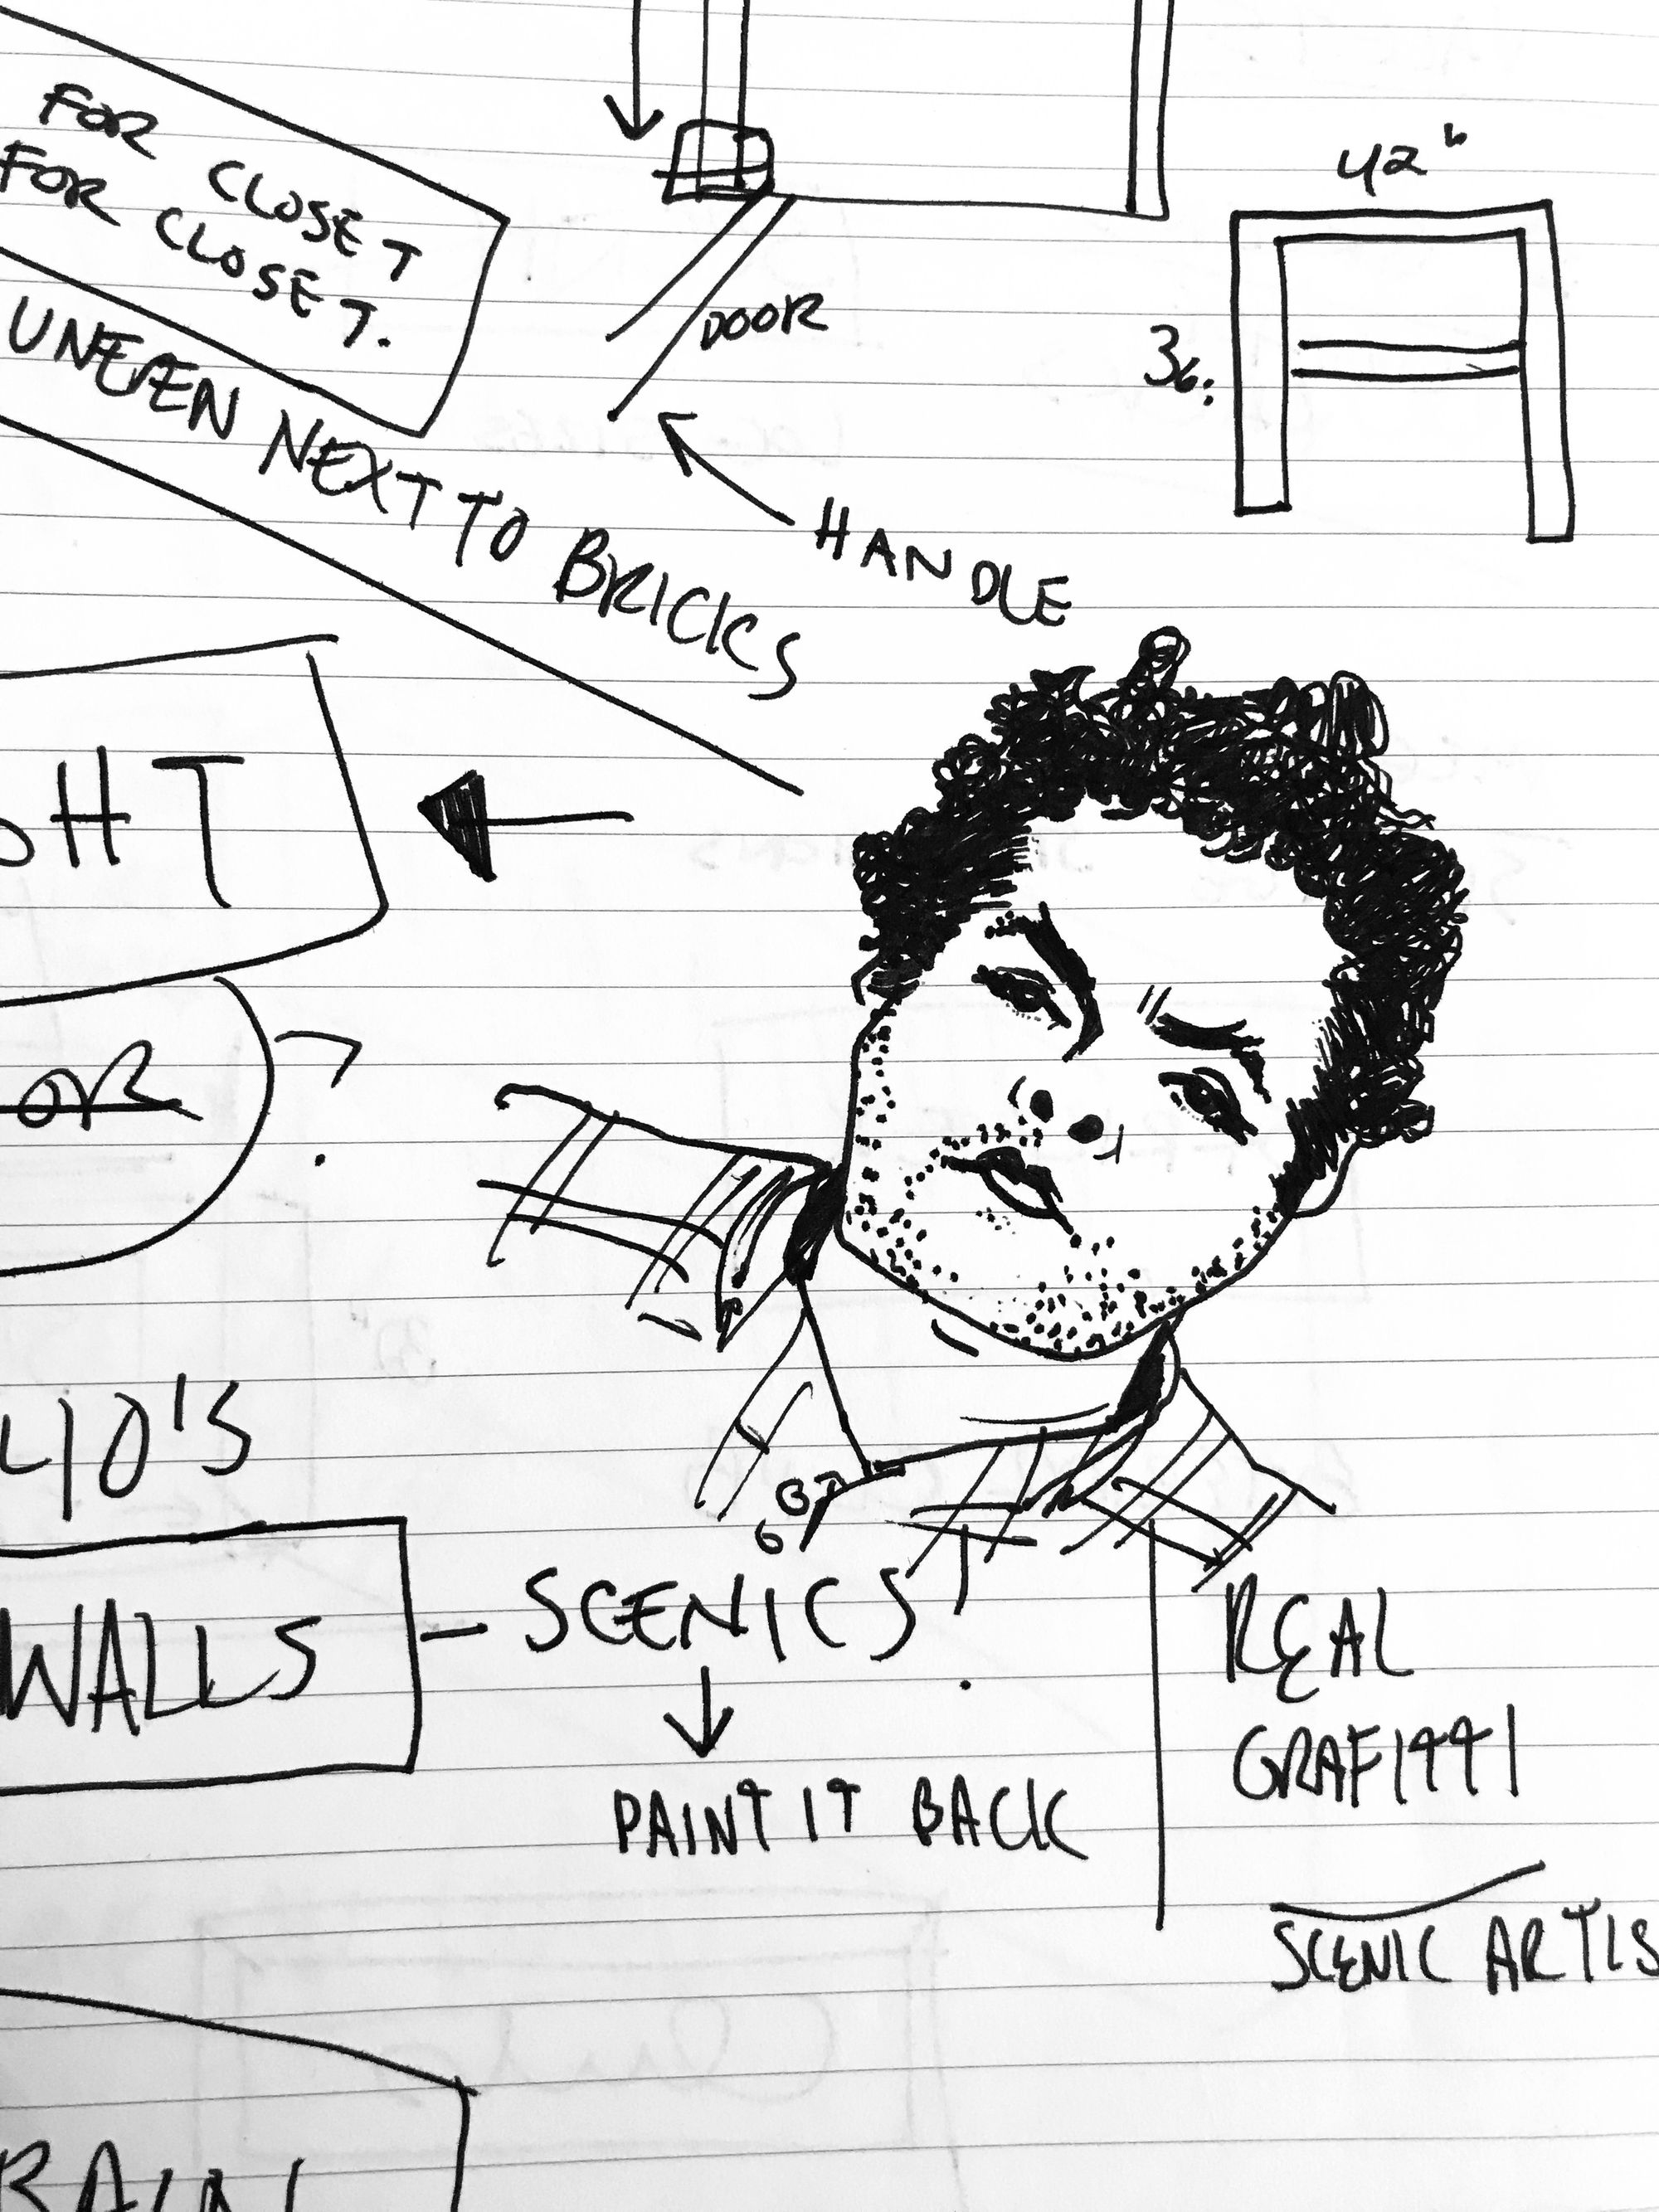 FOR CLOSET
FOR CLOSET.
UNEVEN NEXT TO BRICKS
DOOR
HANDLE
42"
36"
HT
OR ?
40'S
WALLS - SCENICS!
PAINT IT BACK
REAL
GRAFITTI
SCENIC ARTIS